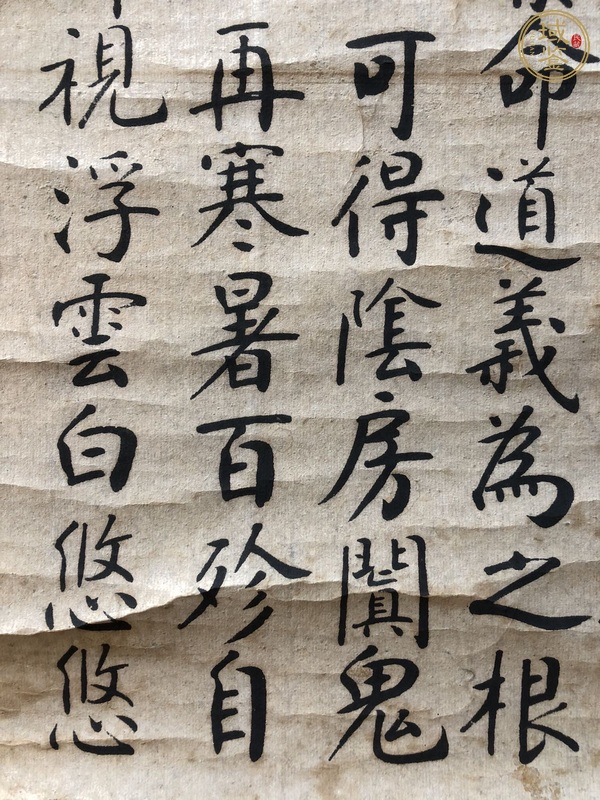 命道義為之根
可得陰房闐鬼
再寒暑百殄自
視浮雲白悠悠